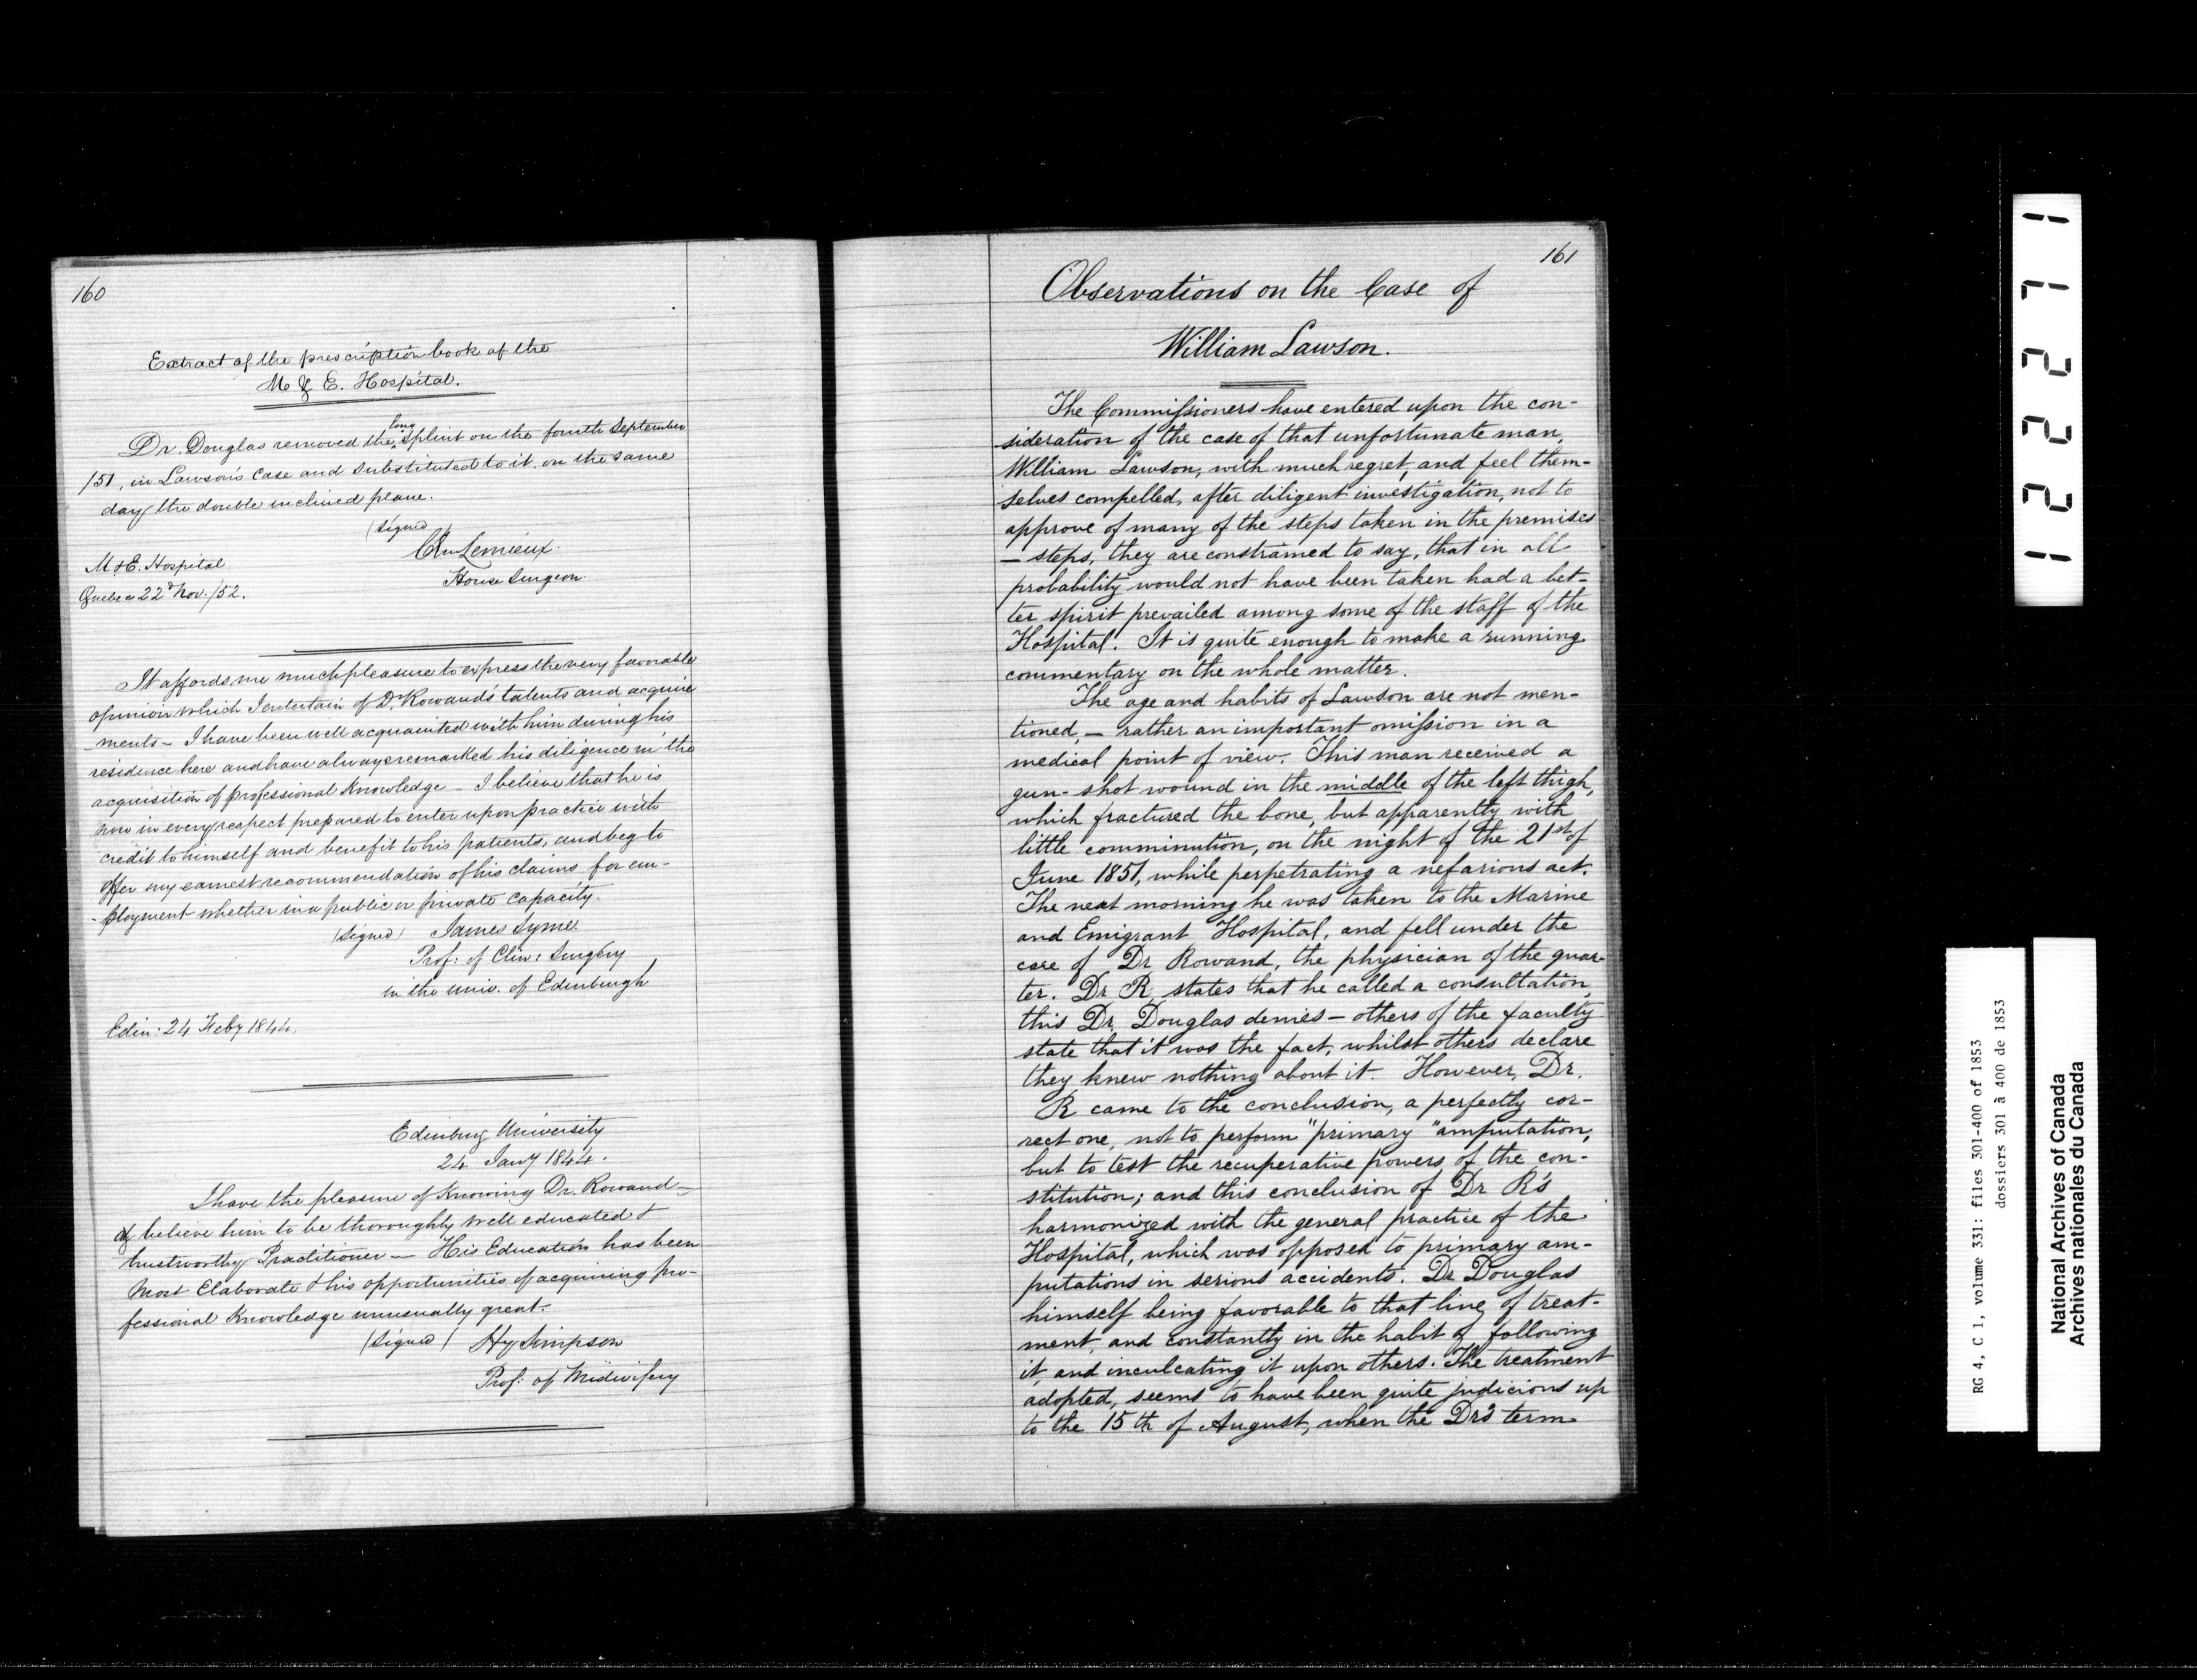 160
Extract of the prescription book of the
M & E. Hospital.
Dr. Douglas removed the long splint on the fourth September
/51, in Lawson's Case and substituted to it on the same
day the double inclined plane.
(Signed
Lemieux.
M & E. Hospital
House Surgeon
Quebec 22d Nov. /52.
It affords me much pleasure to express the very favorable
opinion which I entertain of Dr. Rowand's talents and acquire
-ments - I have been well acquainted with him during his
residence here and have always remarked his diligence in the
acquisition of professional Knowledge - I believe that he is
now in every respect prepared to enter upon practice with
credit to himself and benefit to his patients, and beg to
offer my earnest recommendation of his claims for em-
-ployment whether in a public or private capacity.
(Signed) James Syme
Prof: of Clin: Surgery
in the Univ. of Edinburgh
Edin: 24 Feby 1844.
Edinburg University
24 Jany 1844.
I have the pleasure of Knowing Dr. Rowand -
& believe him to be thoroughly well educated &
trustworthy Practitioner - His Education has been
Most Elaborate & his opportunities of acquiring pro-
fessional Knowledge unusually great.
(Signed) Hy Simpson
Prof: of Midwifery
161
Observations on the Case of
William Lawson.
The Commissioners have entered upon the con-
sideration of the case of that unfortunate man,
William Lawson, with much regret, and feel them-
selves compelled, after diligent investigation, not to
approve of many of the steps taken in the premises
- steps, they are constrained to say, that in all
probability would not have been taken had a bet-
ter spirit prevailed among some of the staff of the
Hospital. It is quite enough to make a running
commentary on the whole matter.
The age and habits of Lawson are not men-
tioned, - rather an important omission in a
medical point of view. This man received a
gun-shot wound in the middle of the left thigh,
which fractured the bone, but apparently with
little comminution, on the night of the 21st of
June 1851, while perpetrating a nefarious act.
The next morning he was taken to the Marine
and Emigrant Hospital, and fell under the
care of Dr Rowand, the physician of the quar-
ter. Dr R. states that he called a consultation,
this Dr. Douglas denies - others of the faculty
state that it was the fact, whilst others declare
they knew nothing about it. However, Dr.
R came to the conclusion, a perfectly cor-
rect one, not to perform "primary" amputation,
but to test the recuperative powers of the con-
stitution; and this conclusion of Dr R's
harmonized with the general practice of the
Hospital, which was opposed to primary am-
putations in serious accidents. Dr Douglas
himself being favorable to that line of treat-
ment, and constantly in the habit of following
it, and inculcating it upon others. The treatment
adopted, seems to have been quite judicious up
to the 15th of August, when the Dr's term
122271
RG 4, C 1, volume 331: files 301-400 of 1853
dossiers 301 à 400 de 1853
National Archives of Canada
Archives nationales du Canada